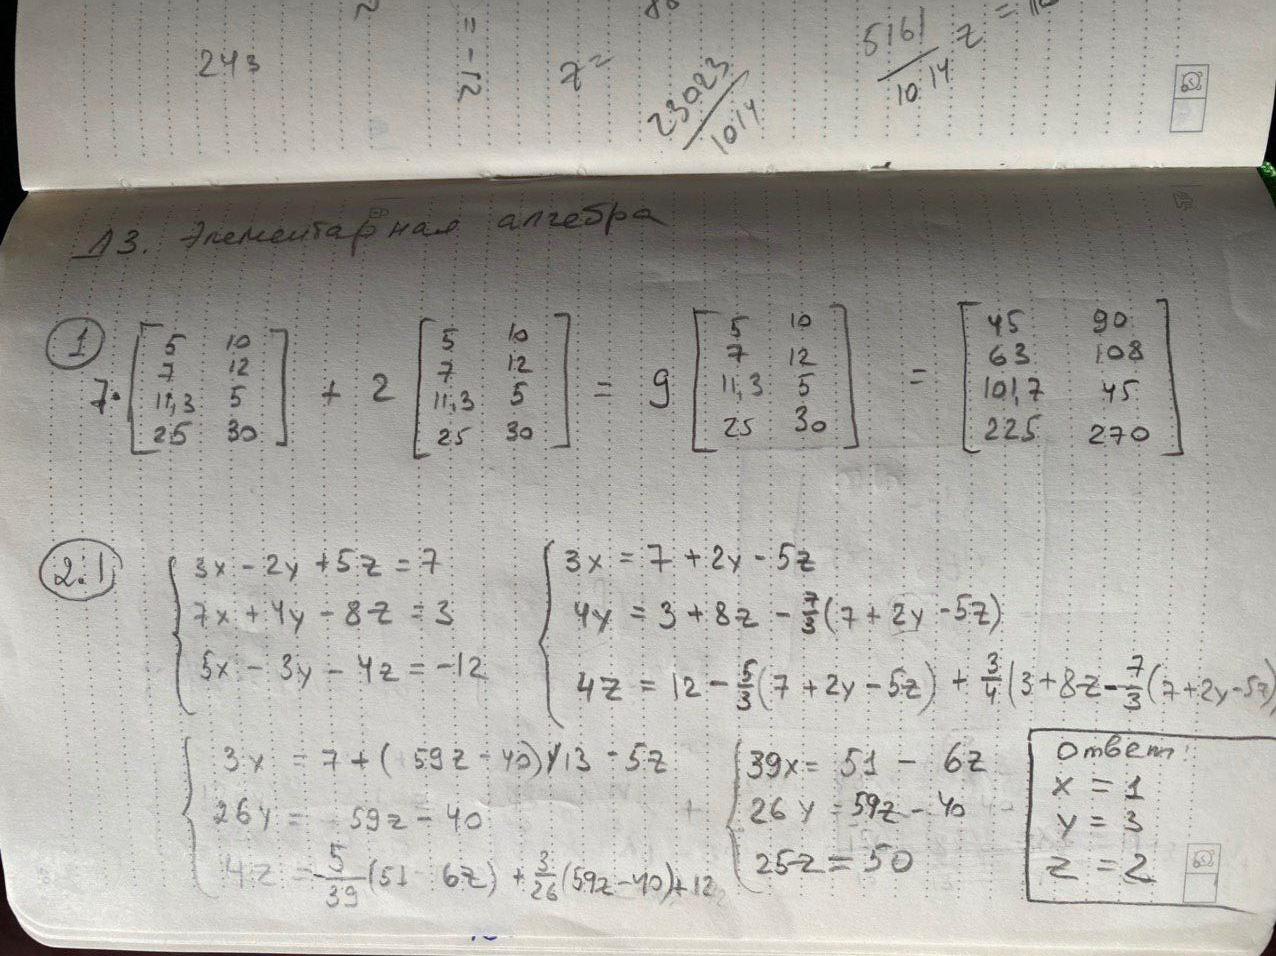 243
z =
23023/1014
5161/1014 z =
ДЗ. Элементарная алгебра
① 7·[5 10; 7 12; 11,3 5; 25 30] + 2 [5 10; 7 12; 11,3 5; 25 30] = 9 [5 10; 7 12; 11,3 5; 25 30] = [45 90; 63 108; 101,7 45; 225 270]
2.1
3x - 2y + 5z = 7
7x + 4y - 8z = 3
5x - 3y - 4z = -12
3x = 7 + 2y - 5z
4y = 3 + 8z - 7/3(7 + 2y - 5z)
4z = 12 - 5/3(7 + 2y - 5z) + 3/4(3 + 8z - 7/3(7 + 2y - 5z)
3x = 7 + (59z - 40)/13 - 5z
26y = 59z - 40
4z = -5/39(51 6z) + 3/26(59z - 40) + 12
39x = 51 - 6z
26y = 59z - 40
25z = 50
Ответ:
x = 1
y = 3
z = 2